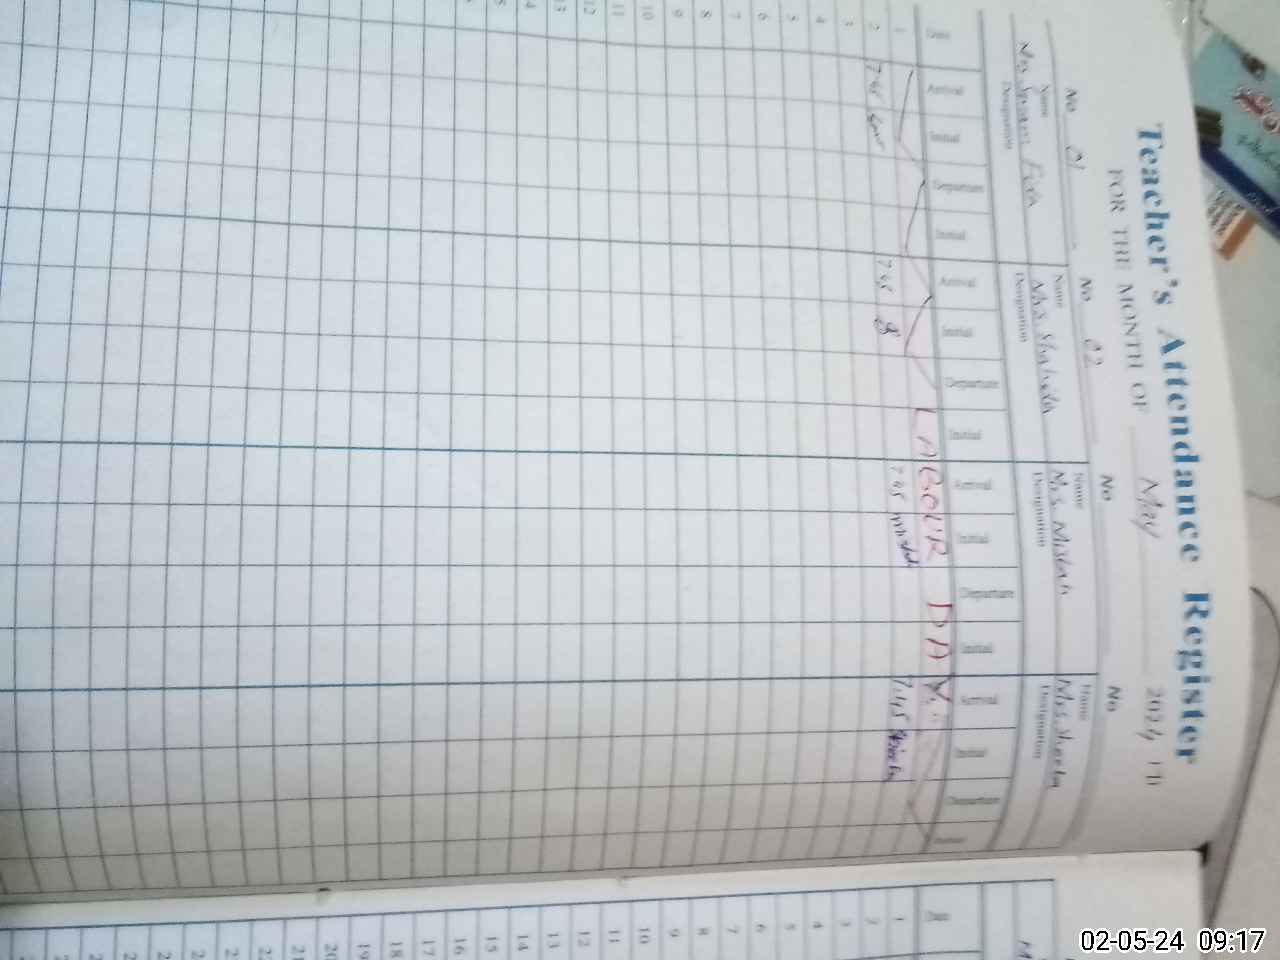 Teacher's Attendance Register
FOR THE MONTH OF May 2024
No 01 No 02 No No
Name Name Name Name
Mrs Mrs. Shahida Mrs. Misbah Mrs.
Designation Designation Designation Designation
Date Arrival Initial Departure Initial Arrival Initial Departure Initial Arrival Initial Departure Initial Arrival Initial Departure
1 LABOUR DAY
2 7:45 7:45 7:45 7:45
3
4
5
6
7
8
9
10
11
12
13
Date
1
2
3
4
5
6
7
8
9
10
11
12
13
14
15
16
17
18
19
20
21
02-05-24 09:17